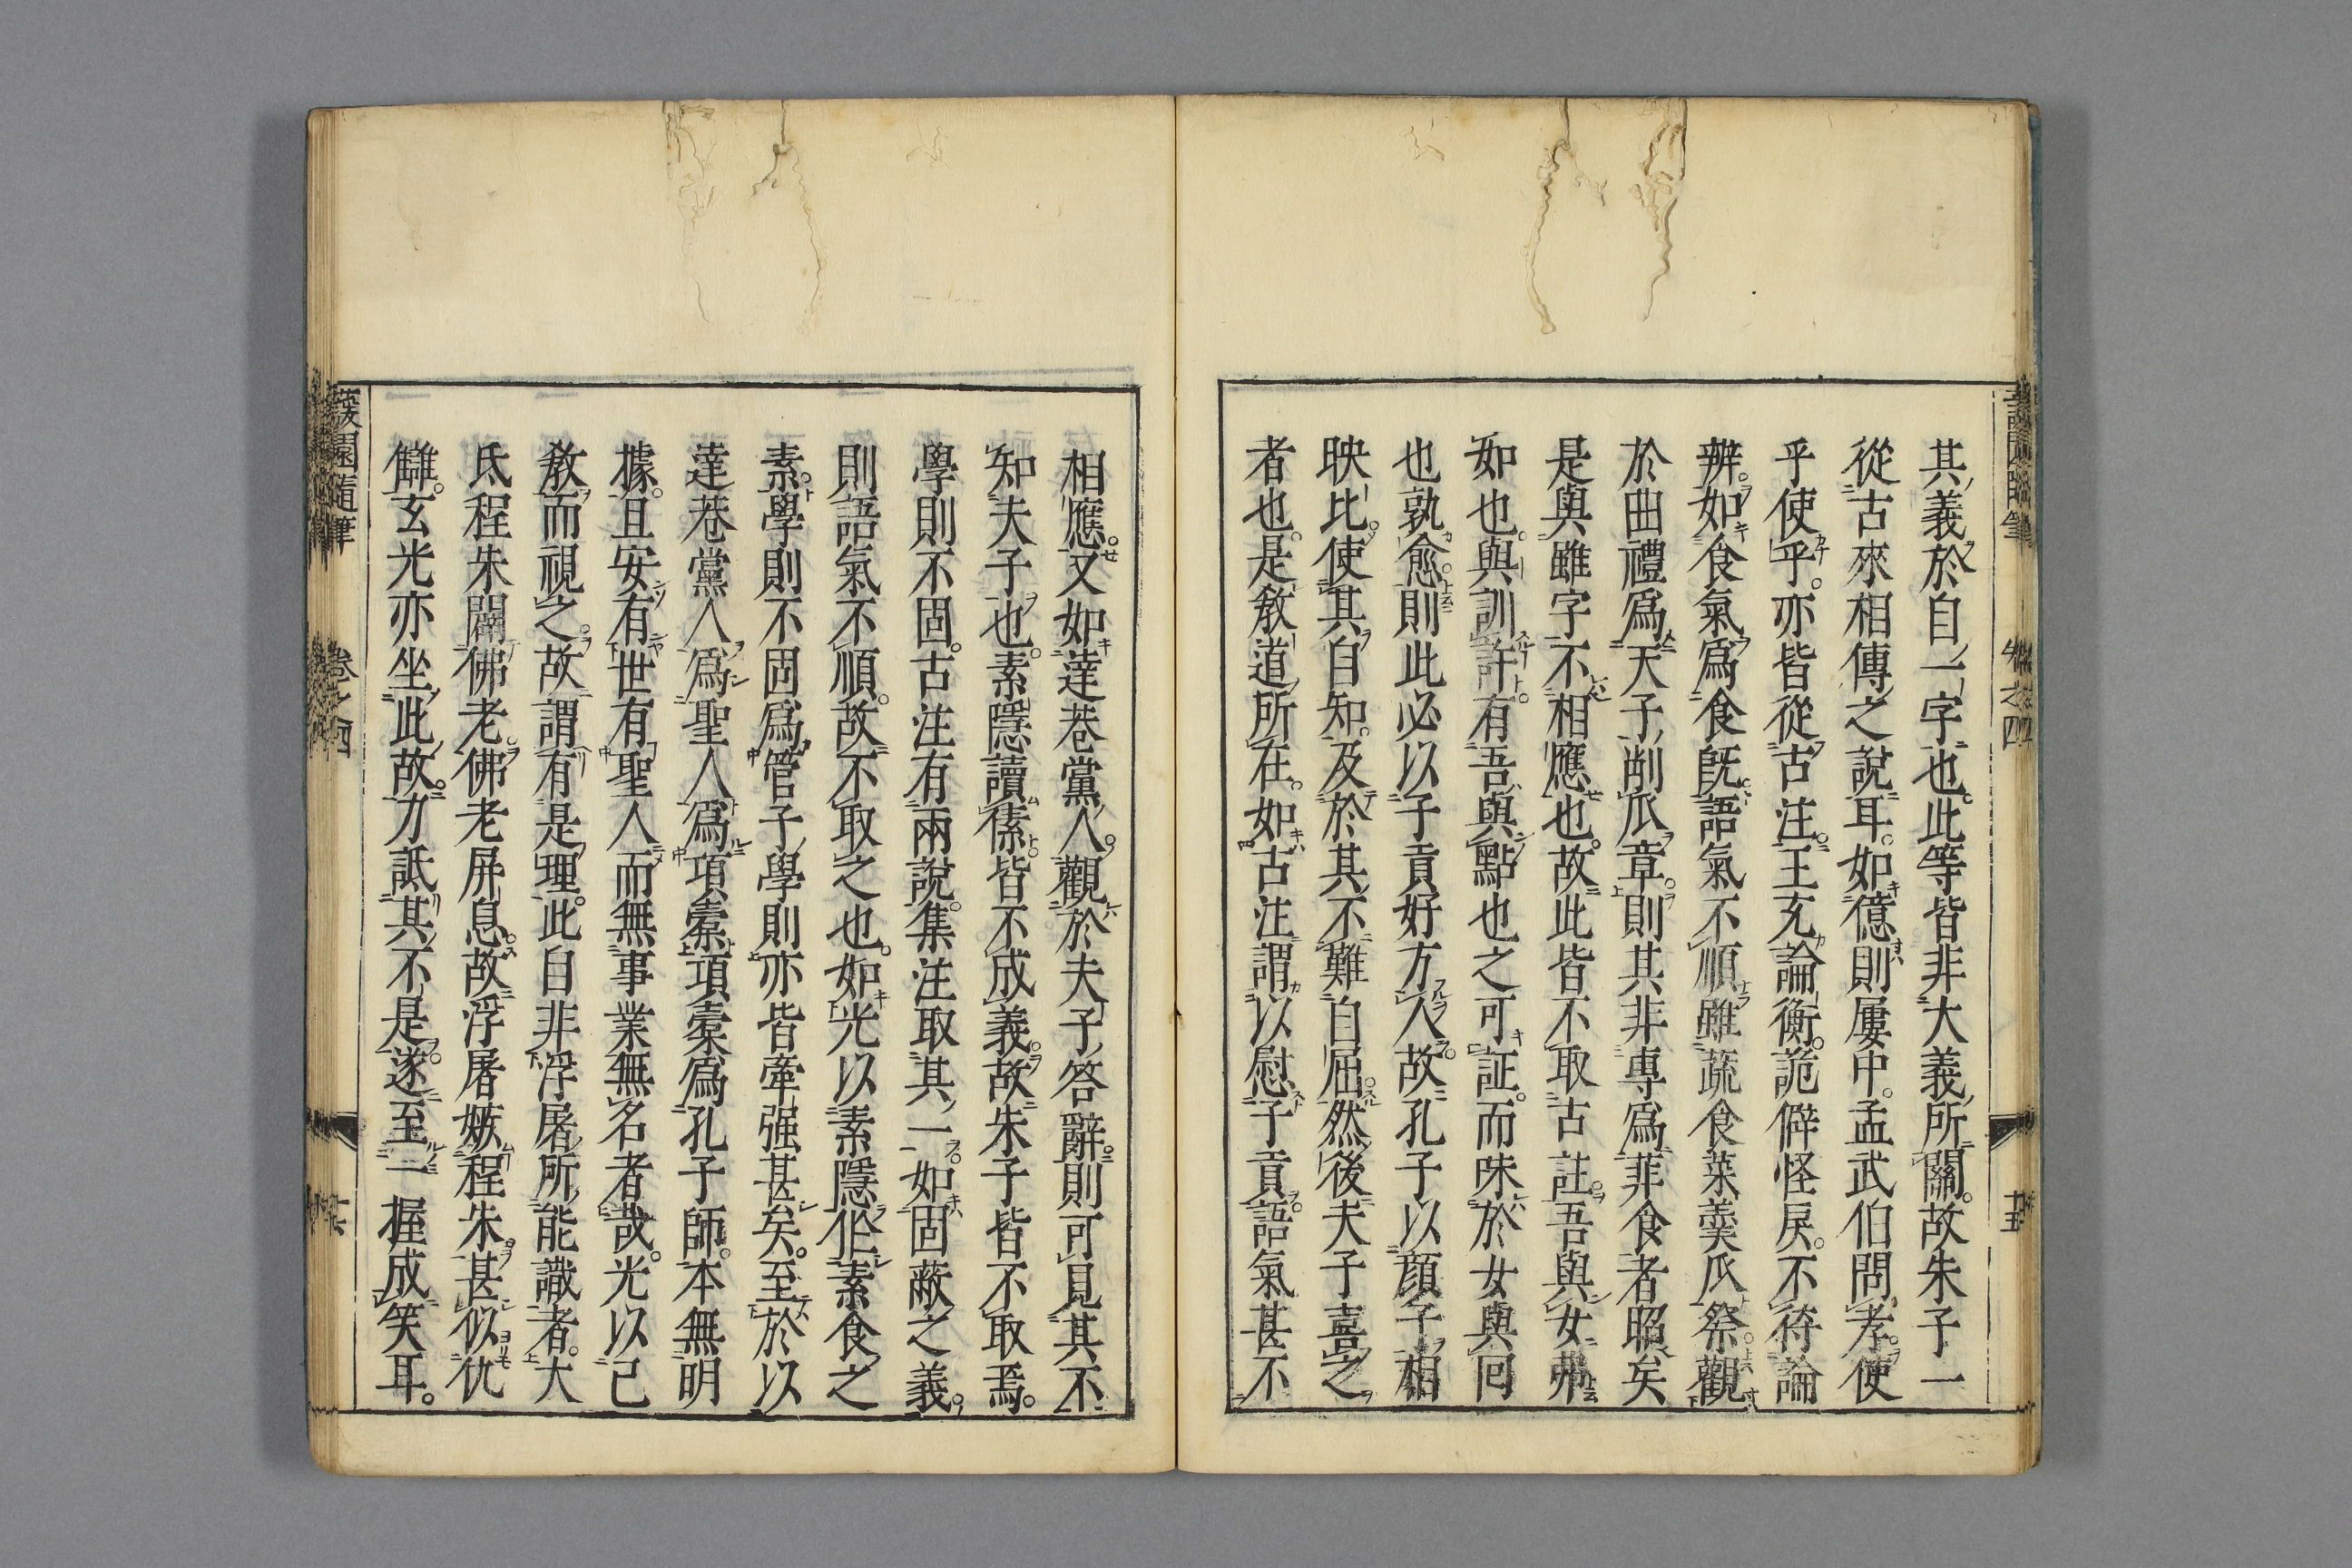 其義於自一字也。此等皆非大義所關。故朱子一
從古來相傳之說耳。如億則屢中。孟武伯問孝。使
乎使乎。亦皆從古注。王充論衡。詭僻怪戾。不符論
辨。如食氣爲食既。語氣不順。雖蔬食菜羹瓜祭。觀
於曲禮爲天子削瓜章。則其非專爲菲食者昭矣
是與雖字不相應也。故此皆不取古註。吾與女弗
如也。與訓許。有吾與點也之可証。而昧於女與回
也孰愈。則此必以子貢好方人。故孔子以顔子相
映比。使其自知。及於其不難自屈。然後夫子喜之
者也。是教道所在。如古注謂以慰子貢。語氣甚不
相應。又如達巷黨人。觀於夫子答辭。則可見其不
知夫子也。素隱讀傃。皆不成義。故朱子皆不取焉。
學則不固。古注有兩說。集注取其一。如固蔽之義。
則語氣不順。故不取之也。如光以素隱作素食之
素。學則不固爲管子學則。亦皆牽强甚矣。至於以
達巷黨人爲聖人爲項橐。項橐爲孔子師。本無明
據。且安有世有聖人而無事業無名者哉。光以己
教而視之。故謂有是理。此自非浮屠所能識者。大
氐程朱闢佛老。佛老屏息。故浮屠嫉程朱。甚似仇
讎。玄光亦坐此故。力詆其不是。遂至一握成笑耳。
蘐園隨筆 卷之四